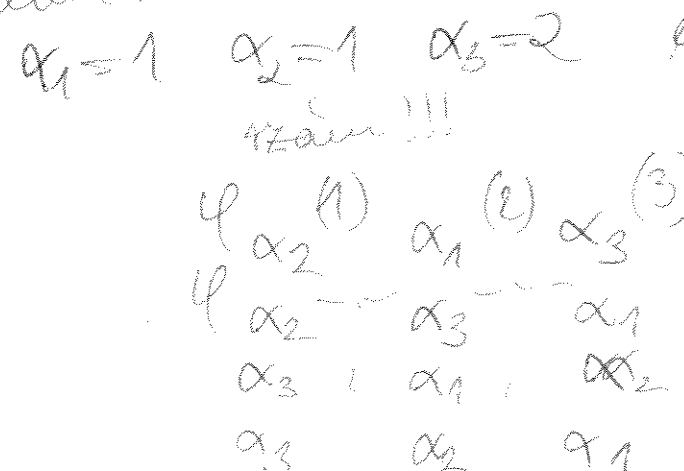 α₁=1 α₂=1 α₃=2
φ α₂ (1) α₁ (2) α₃ (3)
φ α₂ --- α₃ --- α₁
α₃ , α₁ , α₂
α₃ α₂ α₁